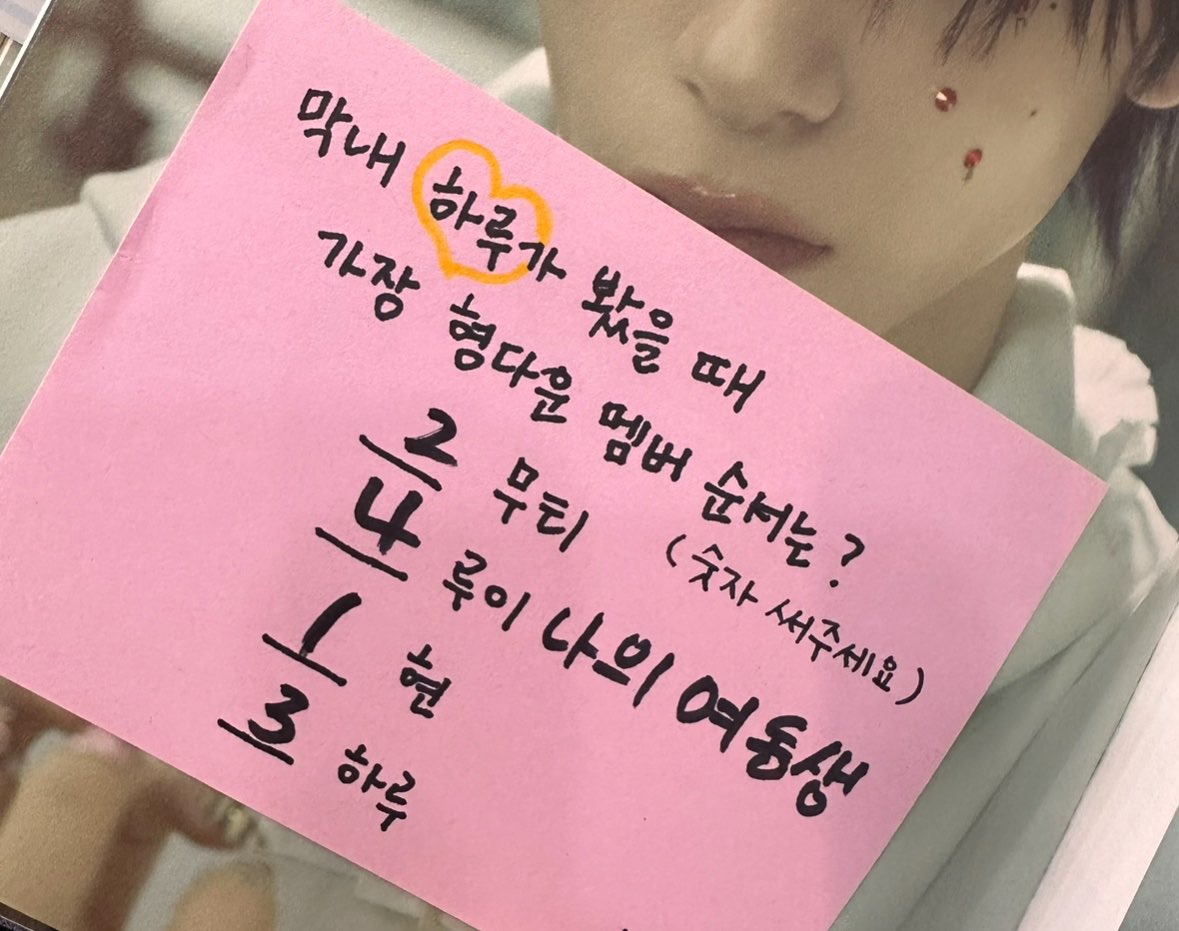 막내 하루가 봤을 때
가장 형다운 멤버 순서는?
(숫자 써주세요)
2 무티
4 루이 나의 여동생
1 현
3 하루